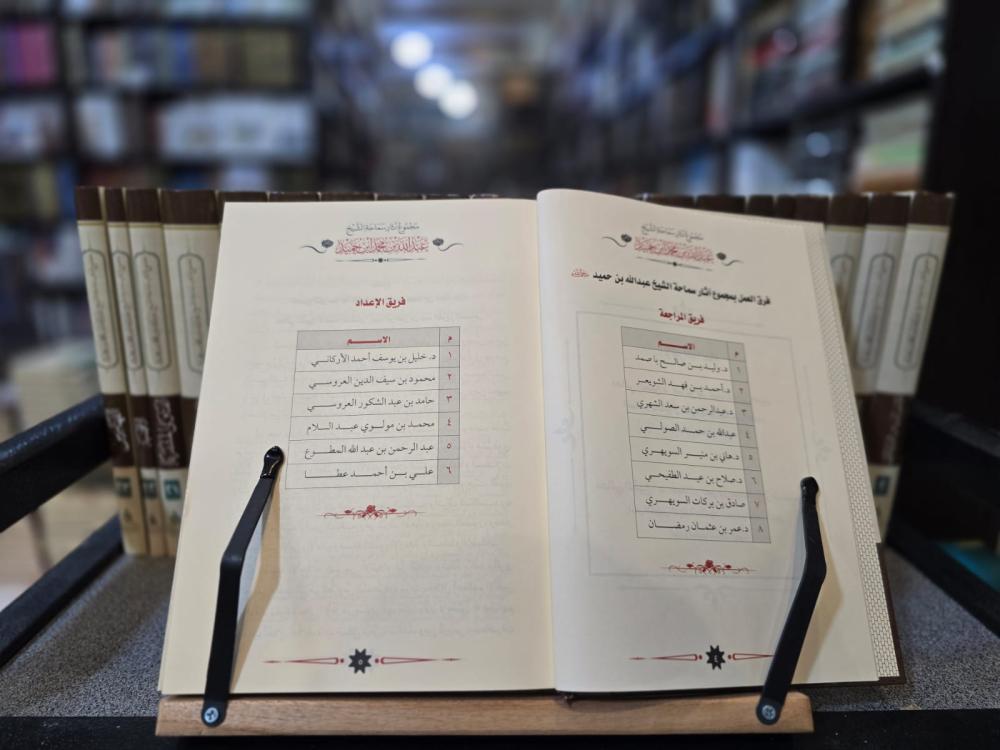 مجموع آثار سماحة الشيخ
عبدالله بن محمد ابن حميد
فرق العمل بمجموع آثار سماحة الشيخ عبدالله بن حميد
فريق المراجعة
م الاسم
١ د. وليد بن صالح باصمد
٢ د. أحمد بن فهد الشويعر
٣ د. عبدالرحمن بن سعد الشهري
٤ عبدالله بن حمد الصولي
٥ د. هاني بن منير السويهري
٦ د. صلاح بن عيد الطفيحي
٧ صادق بن بركات السويهري
٨ د. عمر بن عثمان رمضان
٤
مجموع آثار سماحة الشيخ
عبدالله بن محمد ابن حميد
فريق الإعداد
م الاسم
١ د. خليل بن يوسف أحمد الأركاني
٢ محمود بن سيف الدين العروسي
٣ حامد بن عبد الشكور العروسي
٤ محمد بن مولوي عبد السلام
٥ عبد الرحمن بن عبد الله المطوع
٦ علي بن أحمد عطا
٥